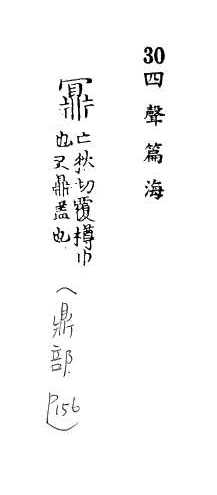 30 四聲篇海
鼏
亡狄切覆樽巾
也又鼎蓋也
(鼎部 P156)